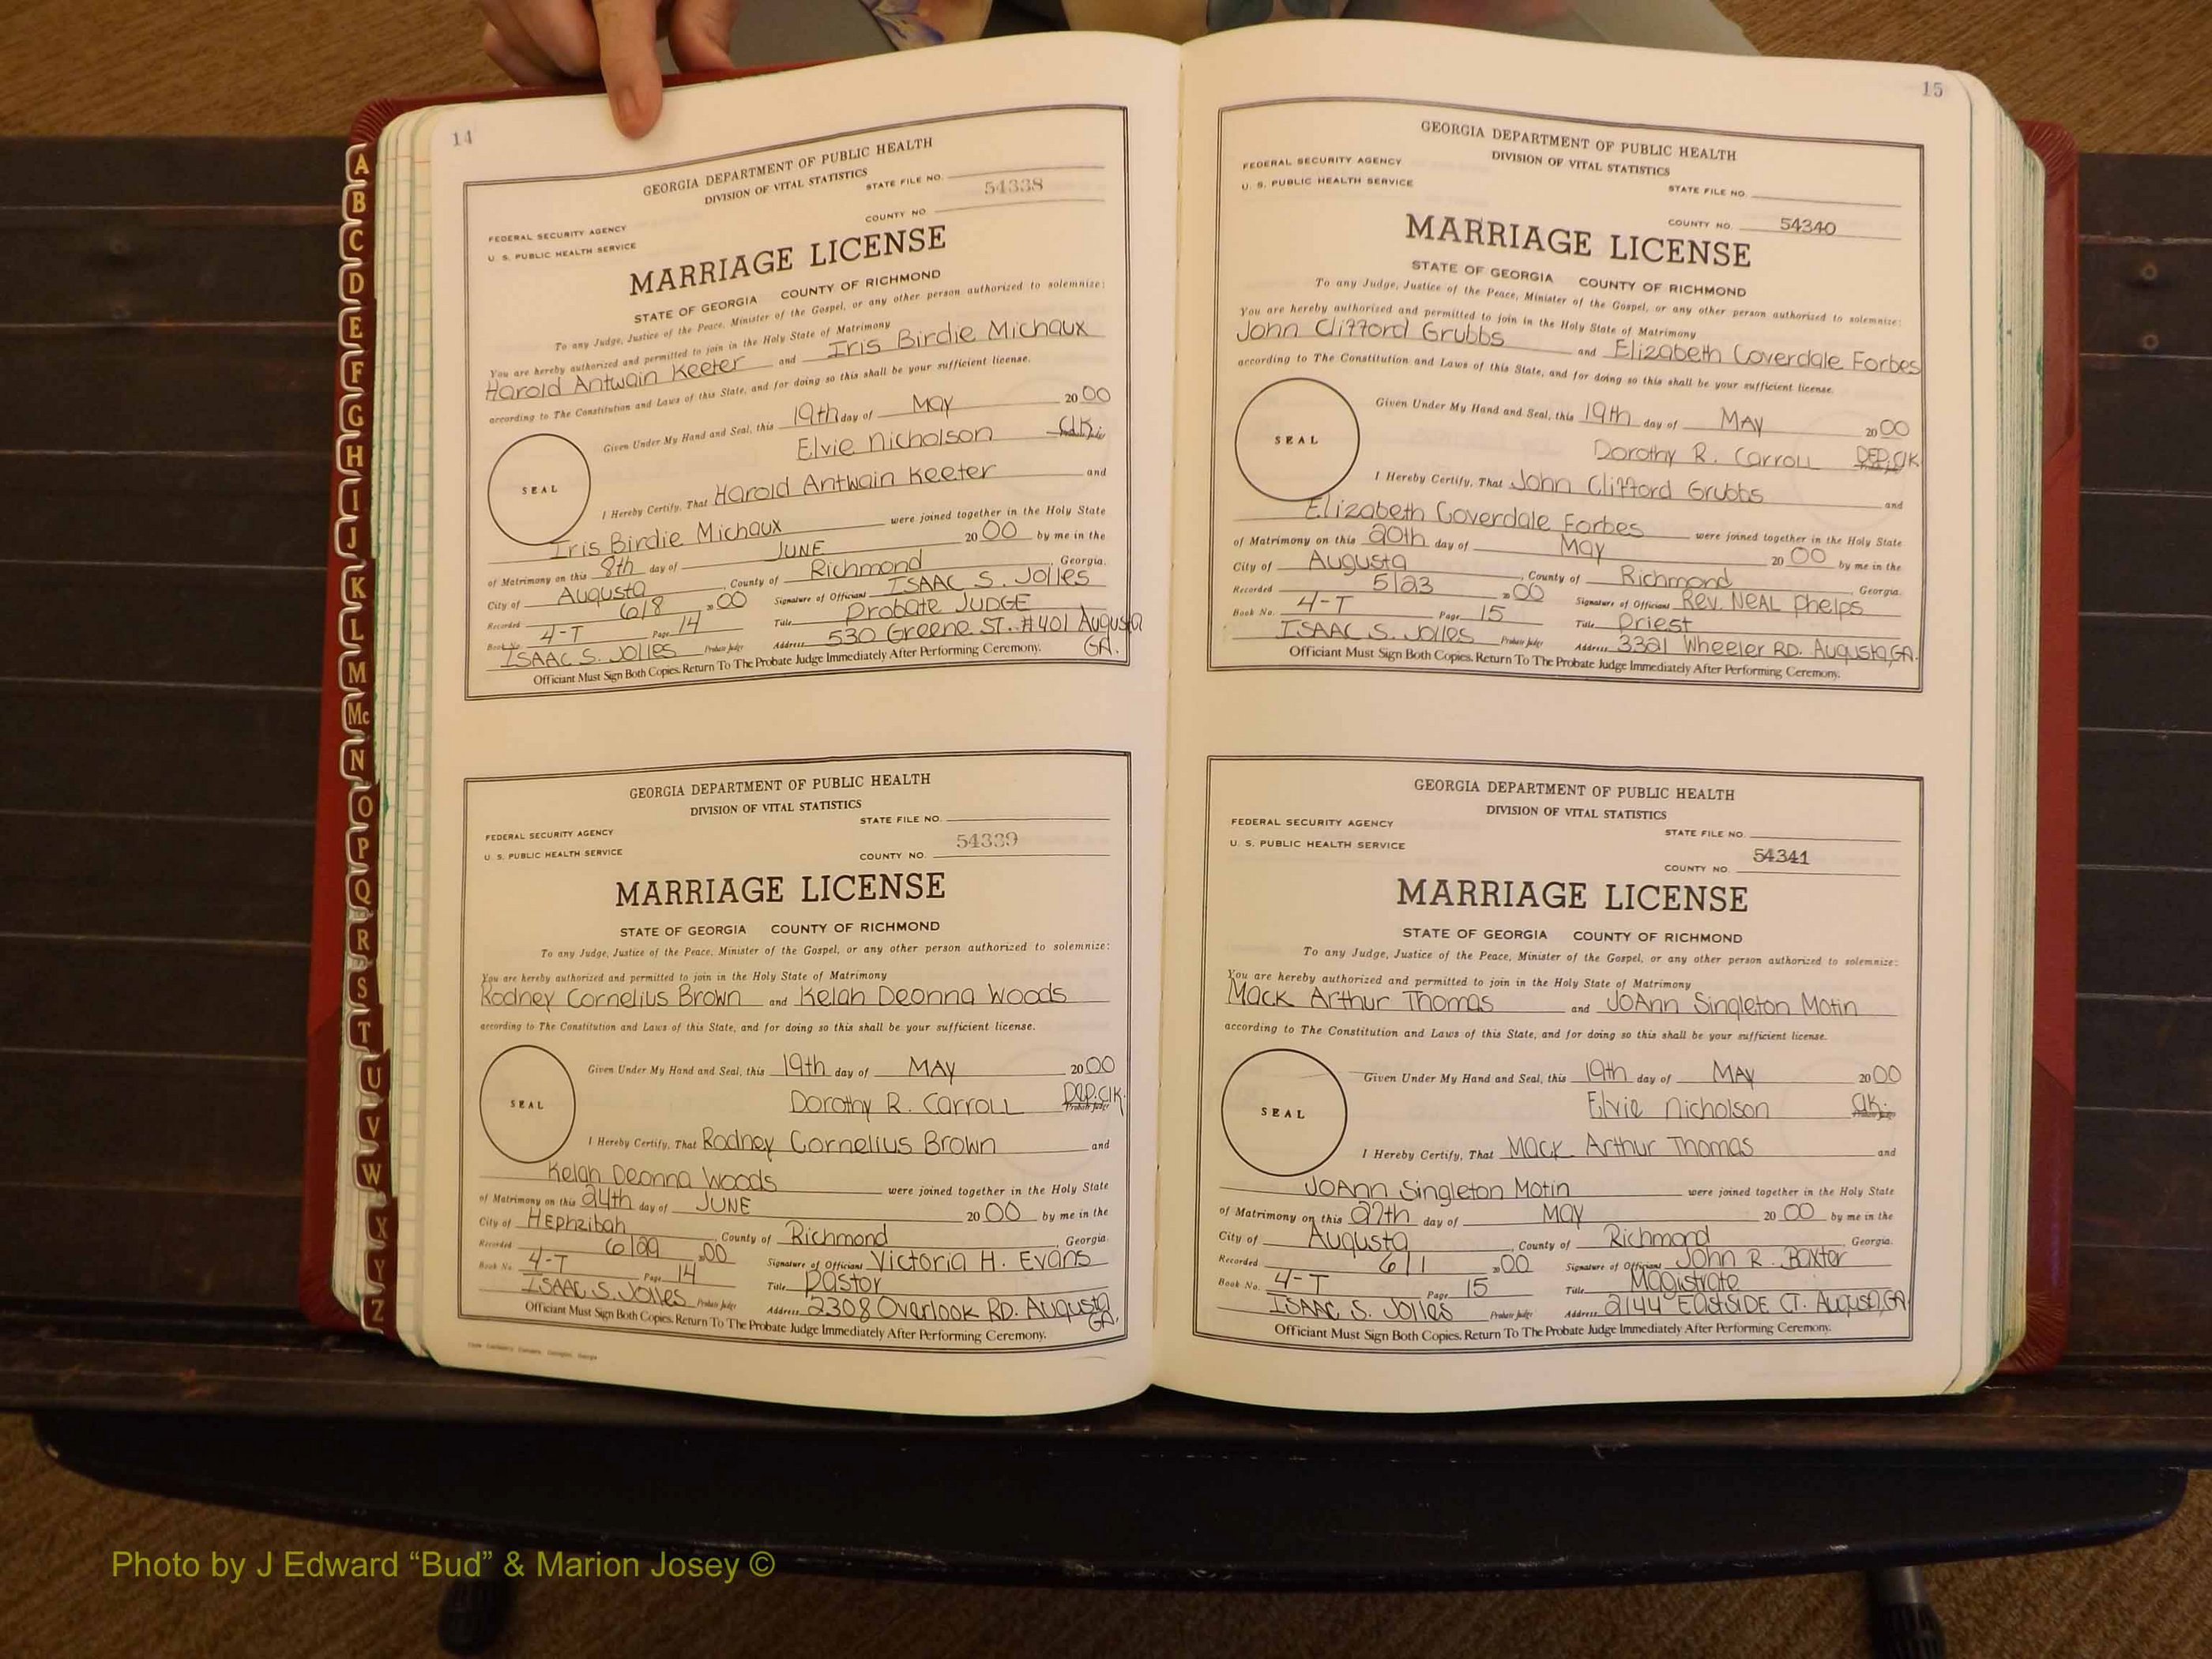 14
GEORGIA DEPARTMENT OF PUBLIC HEALTH
DIVISION OF VITAL STATISTICS
STATE FILE NO.
54338
COUNTY NO.
FEDERAL SECURITY AGENCY
U. S. PUBLIC HEALTH SERVICE
MARRIAGE LICENSE
STATE OF GEORGIA COUNTY OF RICHMOND
To any Judge, Justice of the Peace, Minister of the Gospel, or any other person authorized to solemnize:
You are hereby authorized and permitted to join in the Holy State of Matrimony
Harold Antwain Keeter and Iris Birdie Michaux
according to The Constitution and Laws of this State, and for doing so this shall be your sufficient license.
Given Under My Hand and Seal, this 19th day of May 2000
Elvie Nicholson Clk.
SEAL
I Hereby Certify, That Harold Antwain Keeter and
Iris Birdie Michaux were joined together in the Holy State
of Matrimony on this 8th day of JUNE 2000 by me in the
City of Augusta County of Richmond Georgia.
Recorded 6/8 2000 Signature of Officiant ISAAC S. Jolles
Book No. 4-T Page 14 Title Probate JUDGE
ISAAC S. Jolles Probate Judge Address 530 Greene ST. #401 Augusta GA.
Officiant Must Sign Both Copies. Return To The Probate Judge Immediately After Performing Ceremony.
GEORGIA DEPARTMENT OF PUBLIC HEALTH
DIVISION OF VITAL STATISTICS
STATE FILE NO.
FEDERAL SECURITY AGENCY
54339
U. S. PUBLIC HEALTH SERVICE
COUNTY NO.
MARRIAGE LICENSE
STATE OF GEORGIA COUNTY OF RICHMOND
To any Judge, Justice of the Peace, Minister of the Gospel, or any other person authorized to solemnize:
You are hereby authorized and permitted to join in the Holy State of Matrimony
Rodney Cornelius Brown and Kelah Deonna Woods
according to The Constitution and Laws of this State, and for doing so this shall be your sufficient license.
Given Under My Hand and Seal, this 19th day of MAY 2000
Dorothy R. Carroll Dep. Clk.
SEAL
I Hereby Certify, That Rodney Cornelius Brown and
Kelah Deonna Woods were joined together in the Holy State
of Matrimony on this 24th day of JUNE 2000 by me in the
City of Hephzibah County of Richmond Georgia.
Recorded 6/29 2000 Signature of Officiant Victoria H. Evans
Book No. 4-T Page 14 Title Pastor
ISAAC S. Jolles Probate Judge Address 2308 Overlook RD. Augusta GA.
Officiant Must Sign Both Copies. Return To The Probate Judge Immediately After Performing Ceremony.
15
GEORGIA DEPARTMENT OF PUBLIC HEALTH
DIVISION OF VITAL STATISTICS
FEDERAL SECURITY AGENCY
U. S. PUBLIC HEALTH SERVICE
STATE FILE NO.
COUNTY NO. 54340
MARRIAGE LICENSE
STATE OF GEORGIA COUNTY OF RICHMOND
To any Judge, Justice of the Peace, Minister of the Gospel, or any other person authorized to solemnize:
You are hereby authorized and permitted to join in the Holy State of Matrimony
John Clifford Grubbs and Elizabeth Coverdale Forbes
according to The Constitution and Laws of this State, and for doing so this shall be your sufficient license.
Given Under My Hand and Seal, this 19th day of MAY 2000
Dorothy R. Carroll DEP. Clk
SEAL
I Hereby Certify, That John Clifford Grubbs and
Elizabeth Coverdale Forbes were joined together in the Holy State
of Matrimony on this 20th day of May 2000 by me in the
City of Augusta, County of Richmond Georgia.
Recorded 5/23 2000 Signature of Officiant Rev. NEAL Phelps
Book No. 4-T Page 15 Title Priest
ISAAC S. Jolles Probate Judge Address 3321 Wheeler RD. Augusta, GA.
Officiant Must Sign Both Copies. Return To The Probate Judge Immediately After Performing Ceremony.
GEORGIA DEPARTMENT OF PUBLIC HEALTH
DIVISION OF VITAL STATISTICS
FEDERAL SECURITY AGENCY
STATE FILE NO.
U. S. PUBLIC HEALTH SERVICE
54341
COUNTY NO.
MARRIAGE LICENSE
STATE OF GEORGIA COUNTY OF RICHMOND
To any Judge, Justice of the Peace, Minister of the Gospel, or any other person authorized to solemnize:
You are hereby authorized and permitted to join in the Holy State of Matrimony
Mack Arthur Thomas and JoAnn Singleton Motin
according to The Constitution and Laws of this State, and for doing so this shall be your sufficient license.
Given Under My Hand and Seal, this 19th day of MAY 2000
Elvie Nicholson Clk.
SEAL
I Hereby Certify, That Mack Arthur Thomas and
JoAnn Singleton Motin were joined together in the Holy State
of Matrimony on this 27th day of MAY 2000 by me in the
City of Augusta, County of Richmond Georgia.
Recorded 6/1 2000 Signature of Officiant John R. Baxter
Book No. 4-T Page 15 Title Magistrate
ISAAC S. Jolles Probate Judge Address 2144 EastSIDE CT. Augusta, GA.
Officiant Must Sign Both Copies. Return To The Probate Judge Immediately After Performing Ceremony.
A
B
C
D
E
F
G
H
I
J
K
L
M
Mc
N
O
P
Q
R
S
T
U
V
W
X
Y
Z
Photo by J Edward “Bud” & Marion Josey ©